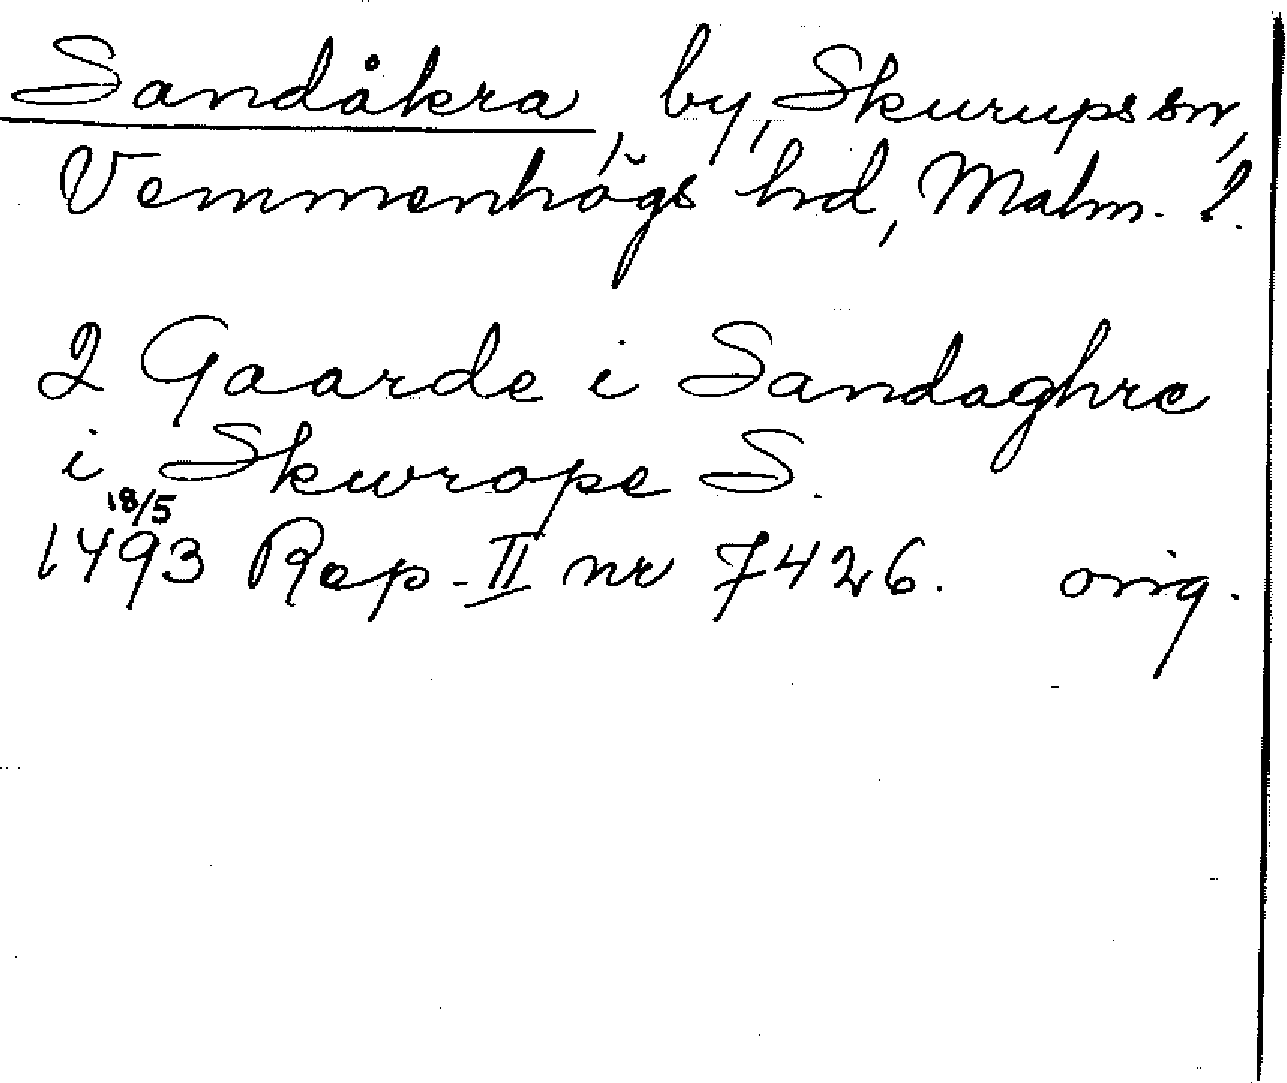 Sandåkra, by, Skurups sn,
Vemmenhögs hd, Malm. l.
2 Gaarde i Sandaghre
i Skwrope S.
18/5
1493 Rep. II nr 7426. orig.